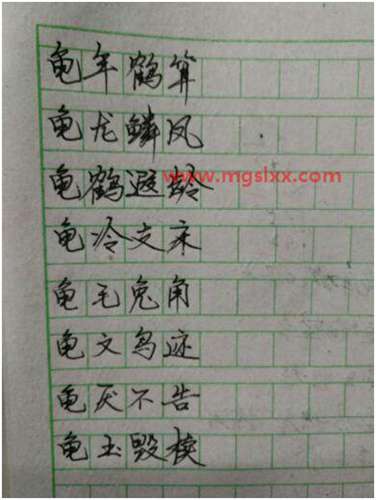 龟年鹤算
龟龙鳞凤
龟鹤遐龄
www.mgslxx.com
龟冷支床
龟毛兔角
龟文鸟迹
龟厌不告
龟玉毁椟